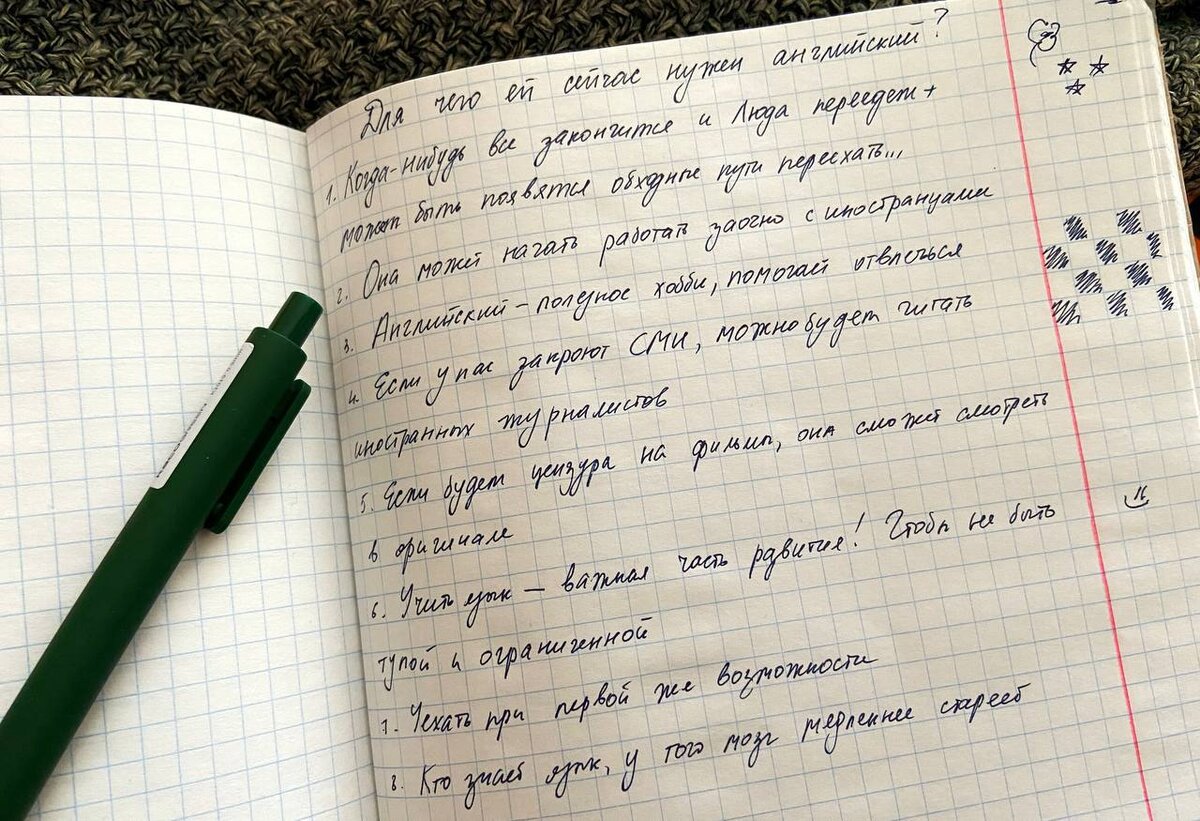 Для чего ей сейчас нужен английский?
1. Когда-нибудь все закончится и Люда переедет +
может быть появятся обходные пути переехать...
2. Она может начать работать заочно с иностранцами
3. Английский - полезное хобби, помогает отвлечься
4. Если у нас закроют СМИ, можно будет читать
иностранных журналистов
5. Если будет цензура на фильмы, она сможет смотреть
в оригинале
6. Учить язык — важная часть развития! Чтобы не быть
тупой и ограниченной
7. Уехать при первой же возможности
8. Кто знает язык, у того мозг медленнее стареет